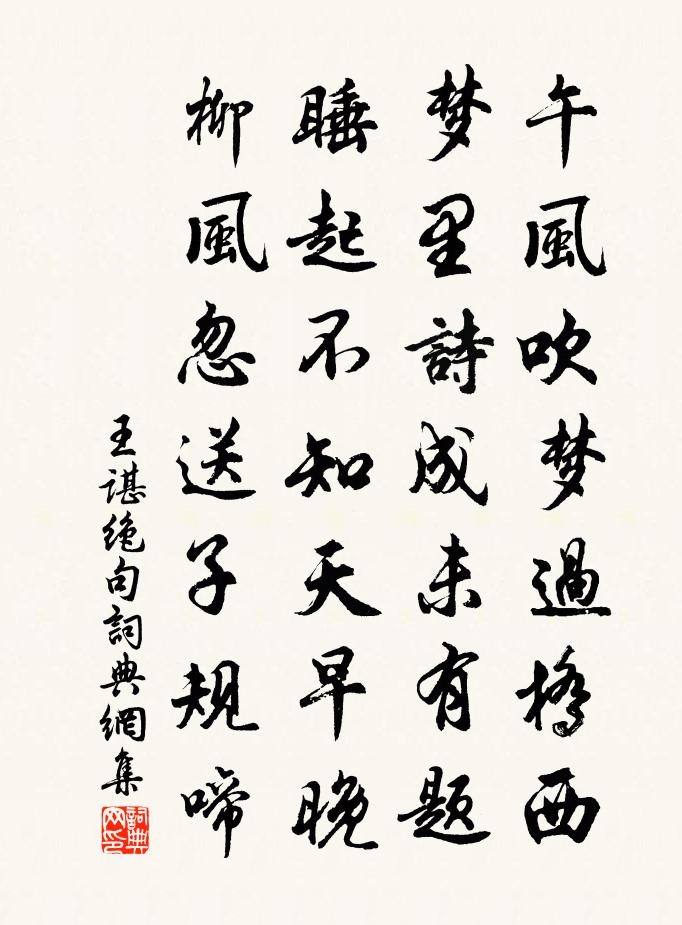 午風吹梦過橋西
梦里詩成未有题
睡起不知天早晚
柳風忽送子規啼
王諶绝句詞典網集
詞典网印